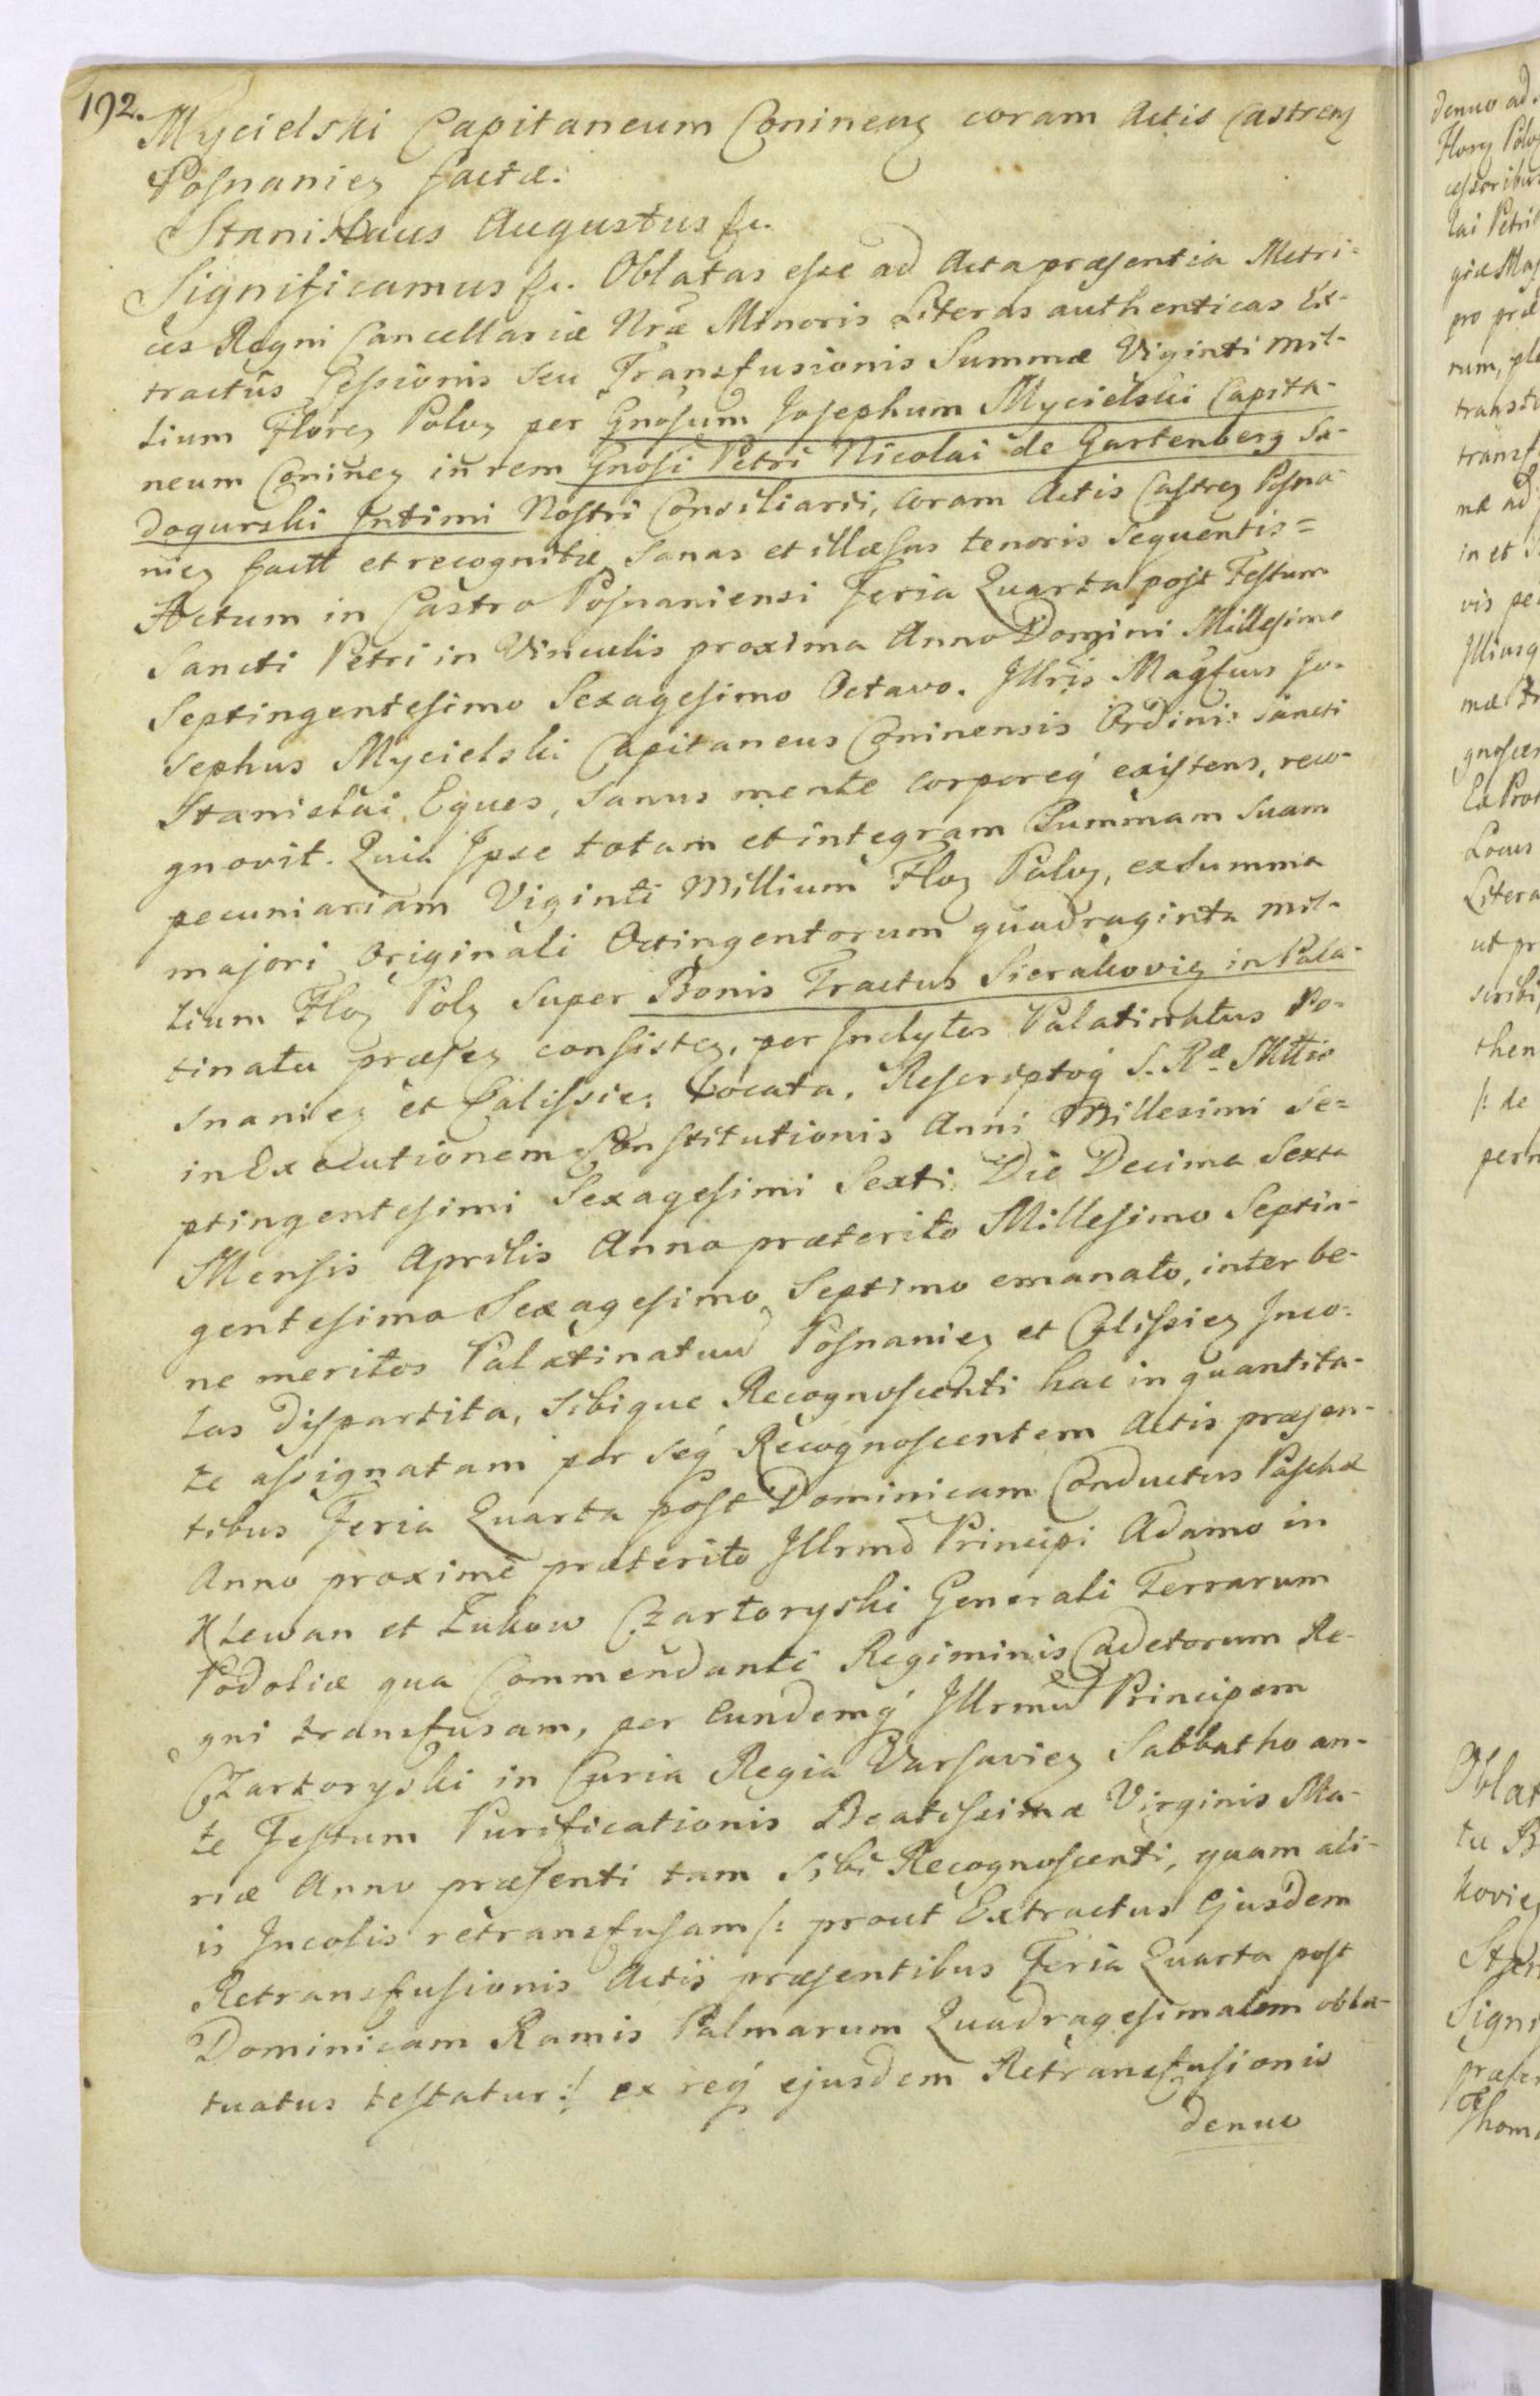 192.
Mycielski Capitaneum Coninenz coram Actis Castrenz
Posnaniez factæ.
Stanislaus Augustus &c.
Significamus &c. Oblatas esse ad Acta præsentia Metri-
ces Regni Cancellariæ Nræ Minoris Literas authenticas Ex-
tractûs Cessionis seu Transfusionis Summæ Viginti mil-
lium Florez Polcz per Gnosum Josephum Mycielski Capita-
neum Coninez in rem Gnosi Petri Nicolai de Gartenberg Sa-
dogurski Intimi Nostri Consiliarii, coram Actis Castrez Posna-
niez factæ et recognitæ, Sanas et illæsas tenoris sequentis=
Actum in Castro Posnaniensi Feria Quarta post Festum
Sancti Petri in Vinculis proxima Anno Domini Millesimo
Septingentesimo Sexagesimo Octavo. Jllris Magfcus Jo-
sephus Mycielski Capitaneus Coninensis Ordinis Sancti
Stanislai Eques, sanus mente corporeq existens, reco-
gnovit. Quia Ipse totam et integram Summam suam
pecuniariam Viginti Millium Floz Polcz, ex Summa
majori originali Octingentorum quadraginta mil-
lium Floz Polz super Bonis Tractus Sierakoviez in Pala-
tinatu præsez consistez, per Inclytos Palatinatus Po-
snaniez et Calissiez locata, Rescriptoq S. Ræ Mttis
in Executionem Constitutionis Anni Millesimi Se=
ptingentesimi Sexagesimi Sexti Die Decima Sexta
Mensis Aprilis Anno præterito Millesimo Septin-
gentesimo Sexagesimo Septimo emanato, inter be-
ne meritos Palatinatuum Posnaniez et Calissiez Inco-
las dispartita, Sibique Recognoscenti hac in quantita-
te assignatam per Seq Recognoscentem Actis præsen-
tibus Feria Quarta post Dominicam Conductus Paschæ
Anno proximè præterito Jllrmo Principi Adamo in
Klewan et Zukow Czartoryski Generali Terrarum
Podoliæ qua Commendanti Regiminis Cadetorum Re-
gni transfusam, per eundemq Jllrmum Principem
Czartoryski in Curia Regia Varsaviez Sabbatho an-
te Festum Purificationis Beatissimæ Virginis Ma-
riæ Anno præsenti tam Sibi Recognoscenti, quam ali-
is Incolis retransfusam /: prout Extractus Ejusdem
Retransfusionis Actis præsentibus Feria Quarta post
Dominicam Ramis Palmarum Quadragesimalem obla-
tuatus testatur :/ ex req ejusdem Retransfusionis
denuo
denuo ad
Polo
cessoribus
lai Petri
giæ Maj
pro præ
rum, ple
transfu
transf
næ ad
in et
vis pe
Jlliusq
mæ
gnoscen
Ex Pro
Locus
Litera
ut pr
scribi
then
/: de
perm
Oblat
tu B
kovie
Signi
præsen
Thoma